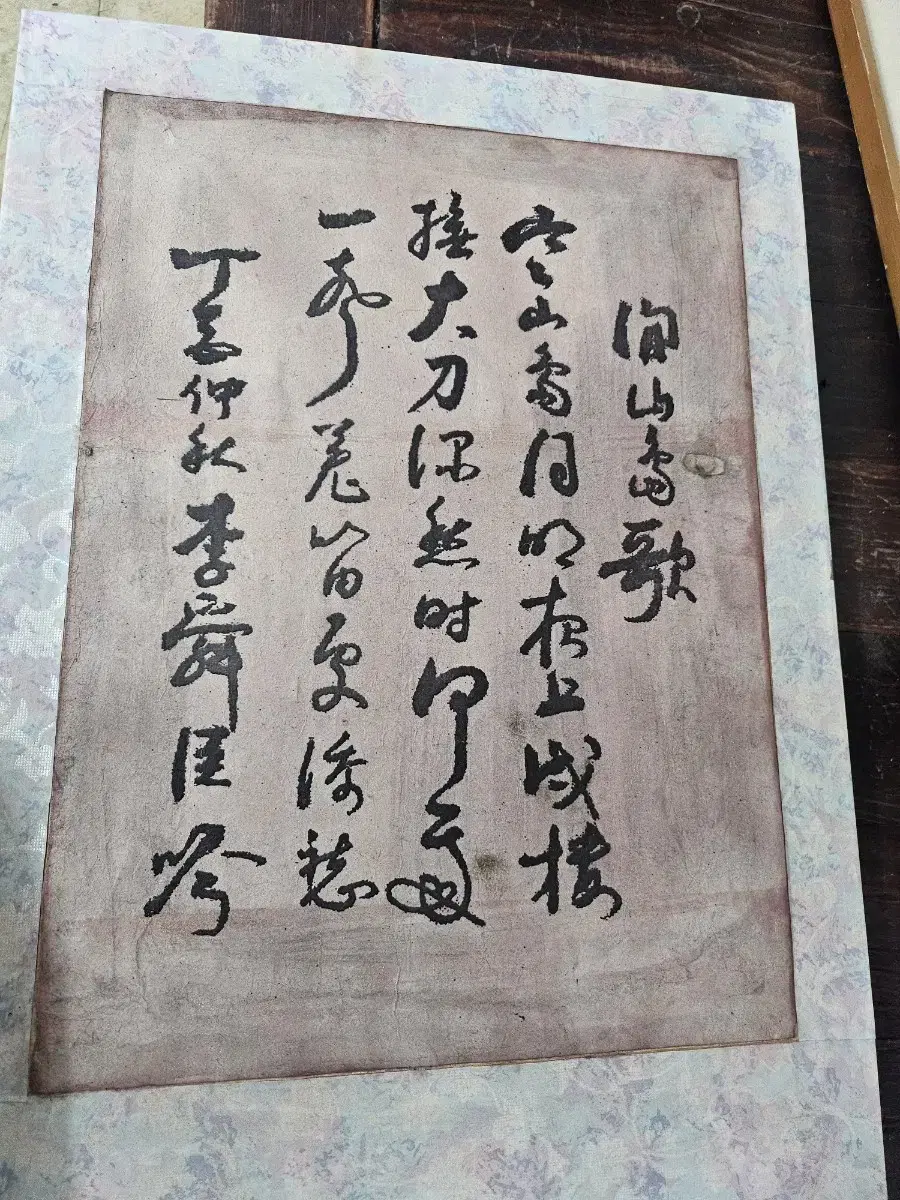 閒山島歌
寒山島月明夜上戍樓
撫大刀深愁時何處
一聲羌笛更添愁
丁酉仲秋李舜臣吟